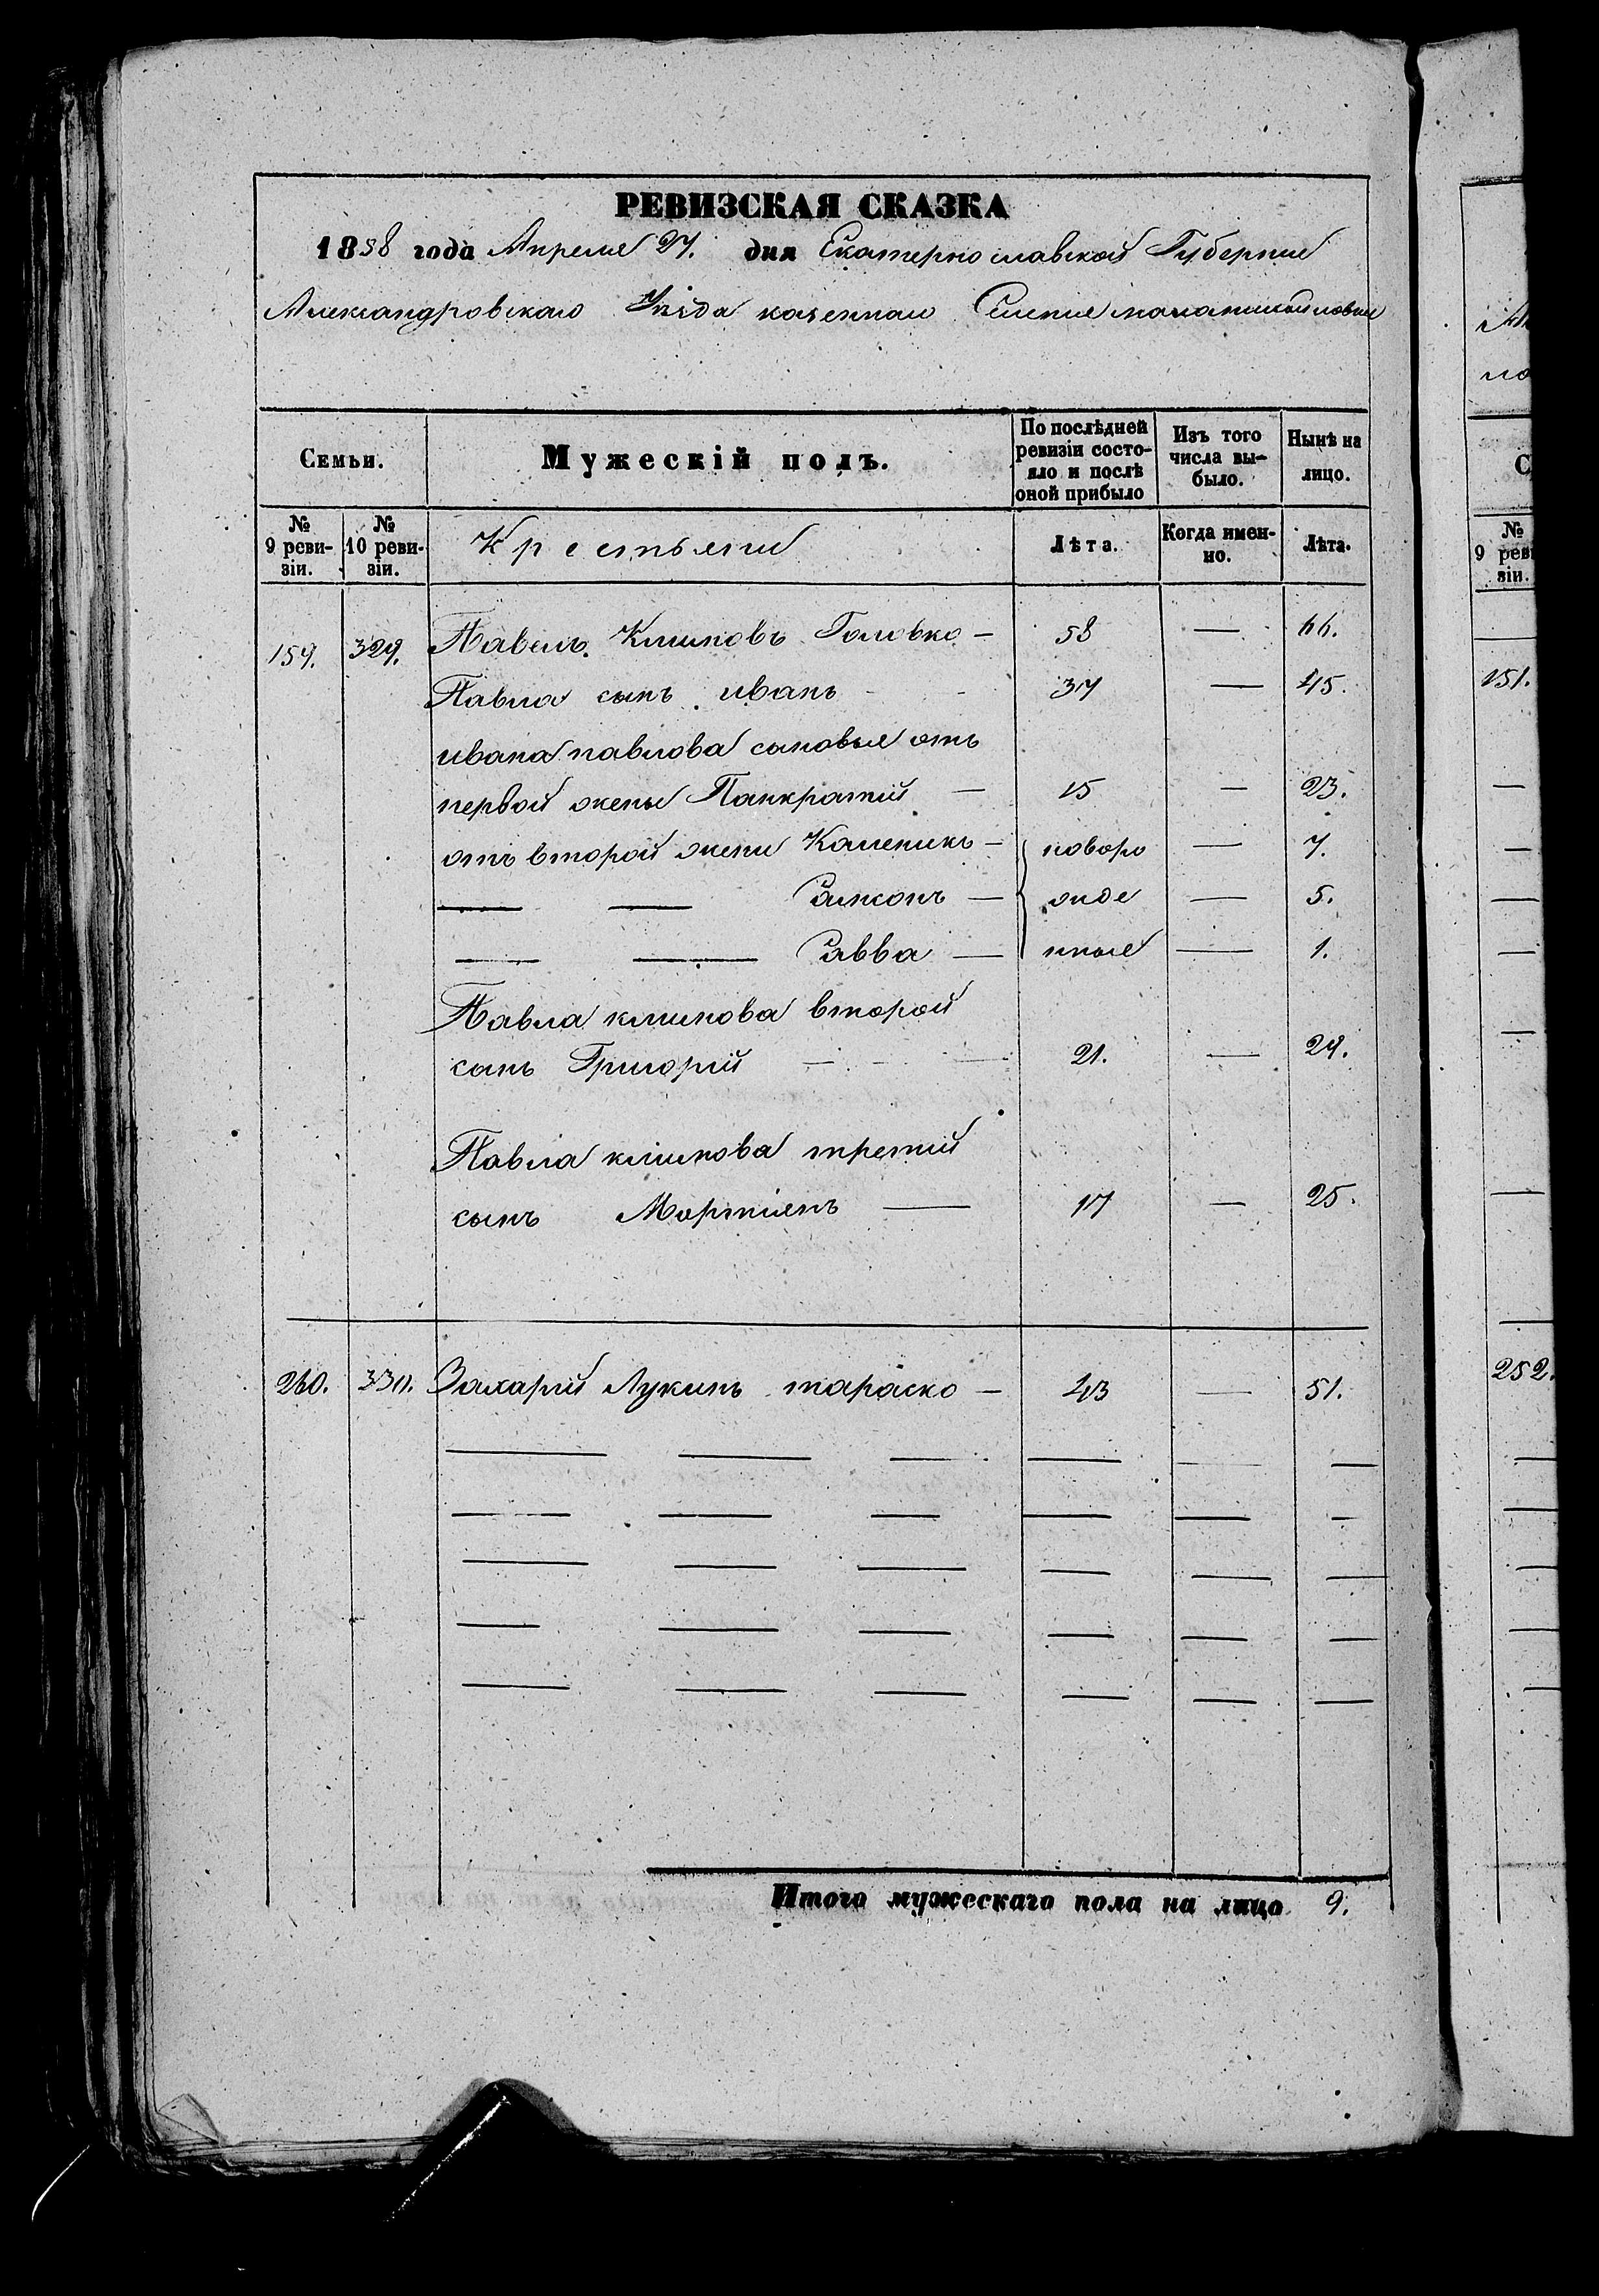 РЕВИЗСКАЯ СКАЗКА
1858 года Апреля 27. дня Екатерино славской Губернии
Александровскаго Уѣзда казеннаго Селения
Семьи.
Мужескій полъ.
По послѣдней ревизіи состояло и послѣ оной прибыло
Изъ того числа выбыло.
Нынѣ на лицо.
№ 9 ревизіи.
№ 10 ревизіи.
Крестьяне
Лѣта.
Когда именно.
Лѣта.
159. 329. Павелъ Климовъ Головко — 58 — 66.
Павла сынъ иванъ - - 37 — 45.
ивана павлова сыновья отъ
первой жены Панкратий — 15 — 23.
отъ второй жены Каленикъ — новоро — 7.
— — Самсонъ — жде — 5.
— — Савва — нные — 1.
Павла климова второй
сынъ Григорій — - — 21. — 29.
Павла климова третий
сынъ Мартиенъ — 17 — 25.
260. 330. Захарий Лукинъ тараско — 43 — 51.
Итого мужескаго пола на лицо 9.
С
№
9 реви
зіи.
151.
252.